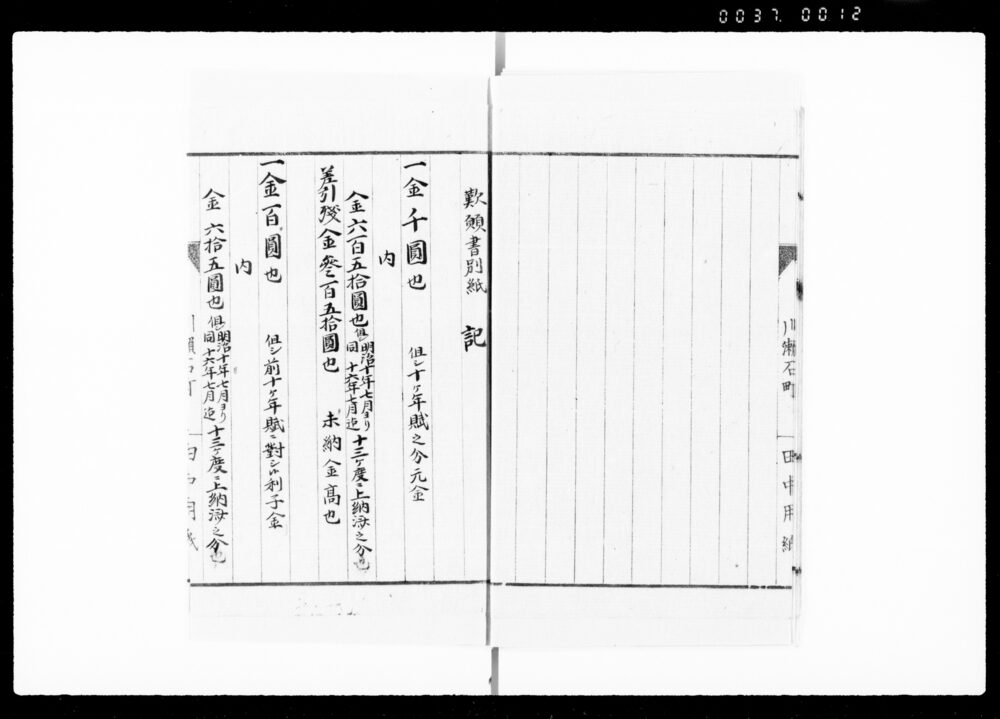 0037. 0012
川瀬石町 田中用紙
歎願書別紙
記
一金千圓也 但シ十ヶ年賦之分元金
内
金六百五拾圓也 但明治十年七月ヨリ同十六年七月迄十三ヶ度ニ上納済之分也
差引残金參百五拾圓也 未納金高也
一金百圓也 但シ前十ヶ年賦ニ對シ候利子金
内
金六拾五圓也 但明治十年七月ヨリ同十六年七月迄十三ヶ度ニ上納済之分也